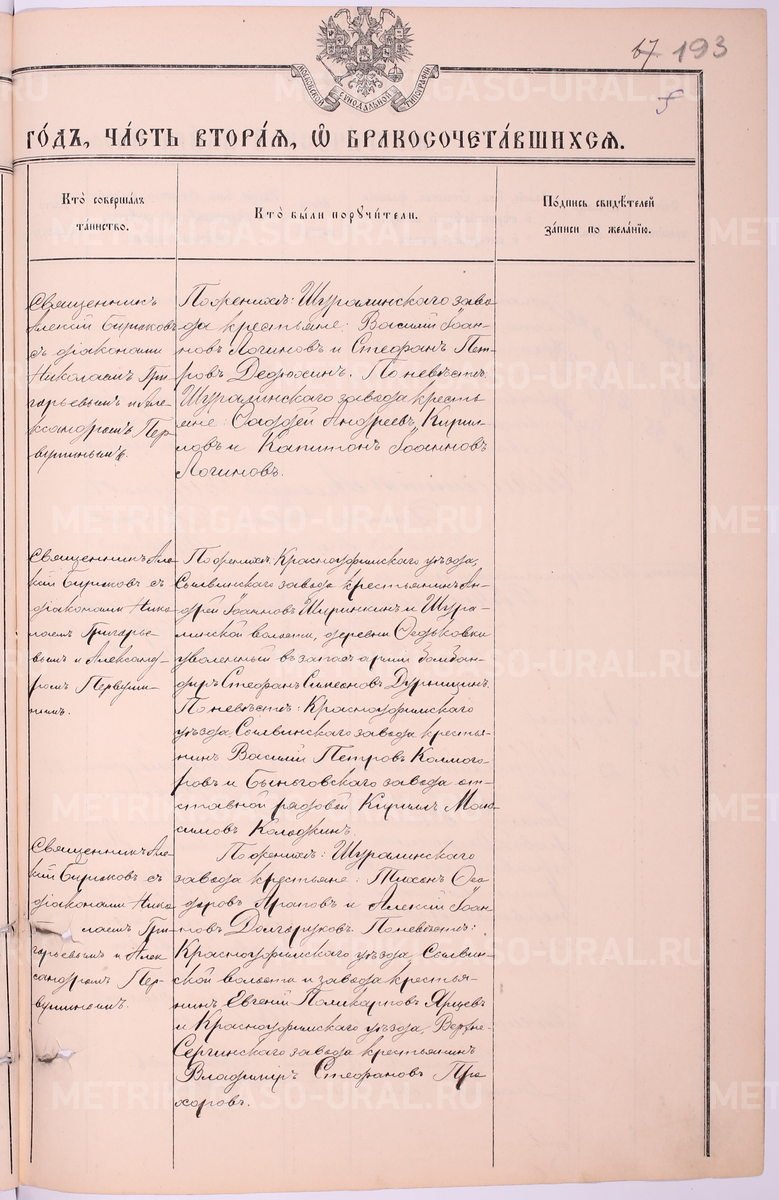 67 193
5
МОСКОВСКОЙ СИНОДАЛЬНОЙ ТИПОГРАФІИ
ГО́ДЪ, ЧА́СТЬ ВТОРА́Я, Ѡ БРАКОСОЧЕТА́ВШИХСЯ.
Кто̀ соверша́лъ
та́инство.
Кто̀ бы́ли порꙋчи́тели.
По́дпись свидѣ́телей
за́писи по жела́нїю.
Священникъ
Алексій Бирюковъ
съ діаконами
Николаемъ Гри-
горьевымъ и Але-
ксандромъ Пер-
вушинымъ.
По женихѣ: Шуралинскаго заво-
да крестьяне: Василій Іоан-
новъ Логиновъ и Стефанъ Пет-
ровъ Дедюхинъ. По невѣстѣ:
Шуралинскаго завода кресть-
яне: Фаддей Андреевъ Кирил-
ловъ и Капитонъ Іоанновъ
Логиновъ.
Священникъ Але-
ксій Бирюковъ съ
діаконами Нико-
лаемъ Григорье-
вымъ и Александ-
ромъ Первуши-
нымъ.
По женихѣ: Красноуфимскаго уѣзда,
Сылвинскаго завода крестьянинъ Ан-
дрей Іоанновъ Ширинкинъ и Шура-
линской волости, деревни Федьковки
уволенный въ запасъ арміи
Стефанъ Симеоновъ
По невѣстѣ: Красноуфимскаго
уѣзда, Сылвинскаго завода крестья-
нинъ Василій Петровъ Колмого-
ровъ и Быньговскаго завода от-
ставной рядовой Кириллъ Мак-
симовъ Колодкинъ.
Священникъ Але-
ксій Бирюковъ съ
діаконами Нико-
лаемъ Гри-
горьевымъ и Алек-
сандромъ Пер-
вушинымъ.
По женихѣ: Шуралинскаго
завода крестьяне: Ѳео-
доровъ Араповъ и Алексій Іоан-
новъ Долгоруковъ. По невѣстѣ:
Красноуфимскаго уѣзда, Сылвин-
ской волости и завода крестья-
нинъ Евгеній Поликарповъ Ярцевъ
и Красноуфимскаго уѣзда, Верхне-
Сергинскаго завода крестьянинъ
Владиміръ Стефановъ Про-
хоровъ.
METRIKI.GASO-URAL.RU